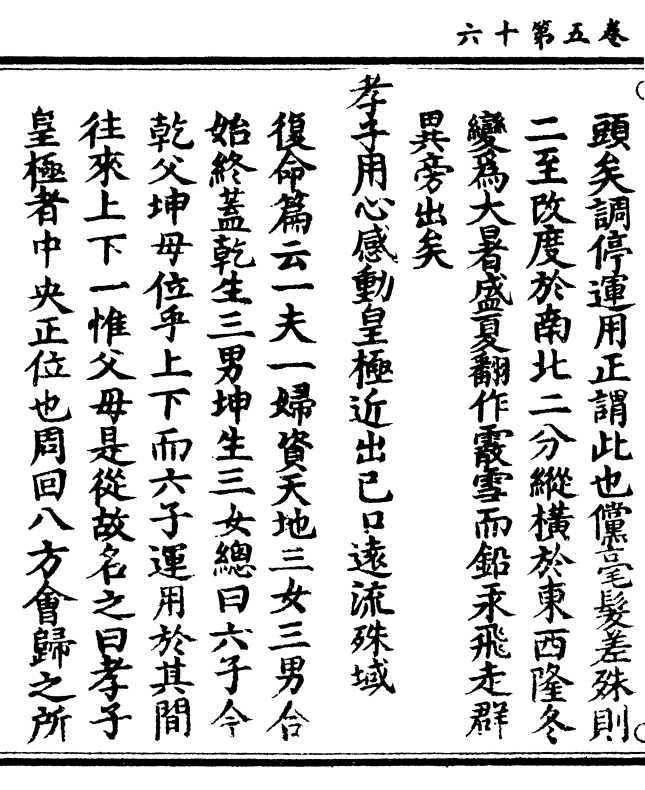 卷五第十六
頭矣調停運用正謂此也儻毫髮差殊則
二至改度於南北二分縱橫於東西隆冬
變爲大暑盛夏翻作霰雪而鉛汞飛走群
異旁出矣
孝子用心感動皇極近出己口遠流殊域
復命篇云一夫一婦資天地三女三男合
始終蓋乾生三男坤生三女總曰六子今
乾父坤母位乎上下而六子運用於其間
往來上下一惟父母是從故名之曰孝子
皇極者中央正位也周回八方會歸之所